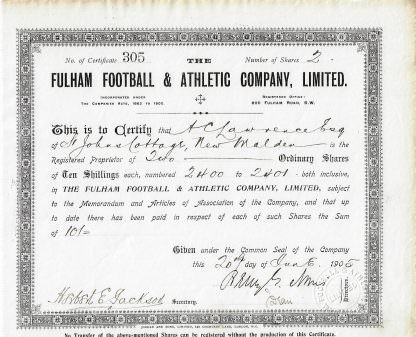 No. of Certificate 305 THE Number of Shares 2
FULHAM FOOTBALL & ATHLETIC COMPANY, LIMITED.
INCORPORATED UNDER REGISTERED OFFICE:
THE COMPANIES ACTS, 1862 TO 1900. FULHAM ROAD, S.W.
This is to Certify that A C Lawrence Esq
of St Johns Cottage, New Malden is the
Registered Proprietor of Two Ordinary Shares
of Ten Shillings each, numbered 2400 to 2401 - both inclusive,
in THE FULHAM FOOTBALL & ATHLETIC COMPANY, LIMITED, subject
to the Memorandum and Articles of Association of the Company, and that up
to date there has been paid in respect of each of such Shares the Sum
of 10/-
Given under the Common Seal of the Company
this 20th day of June 1905
Herbert E Jackson Secretary. Directors.
No Transfer of the above-mentioned Shares can be registered without the production of this Certificate.